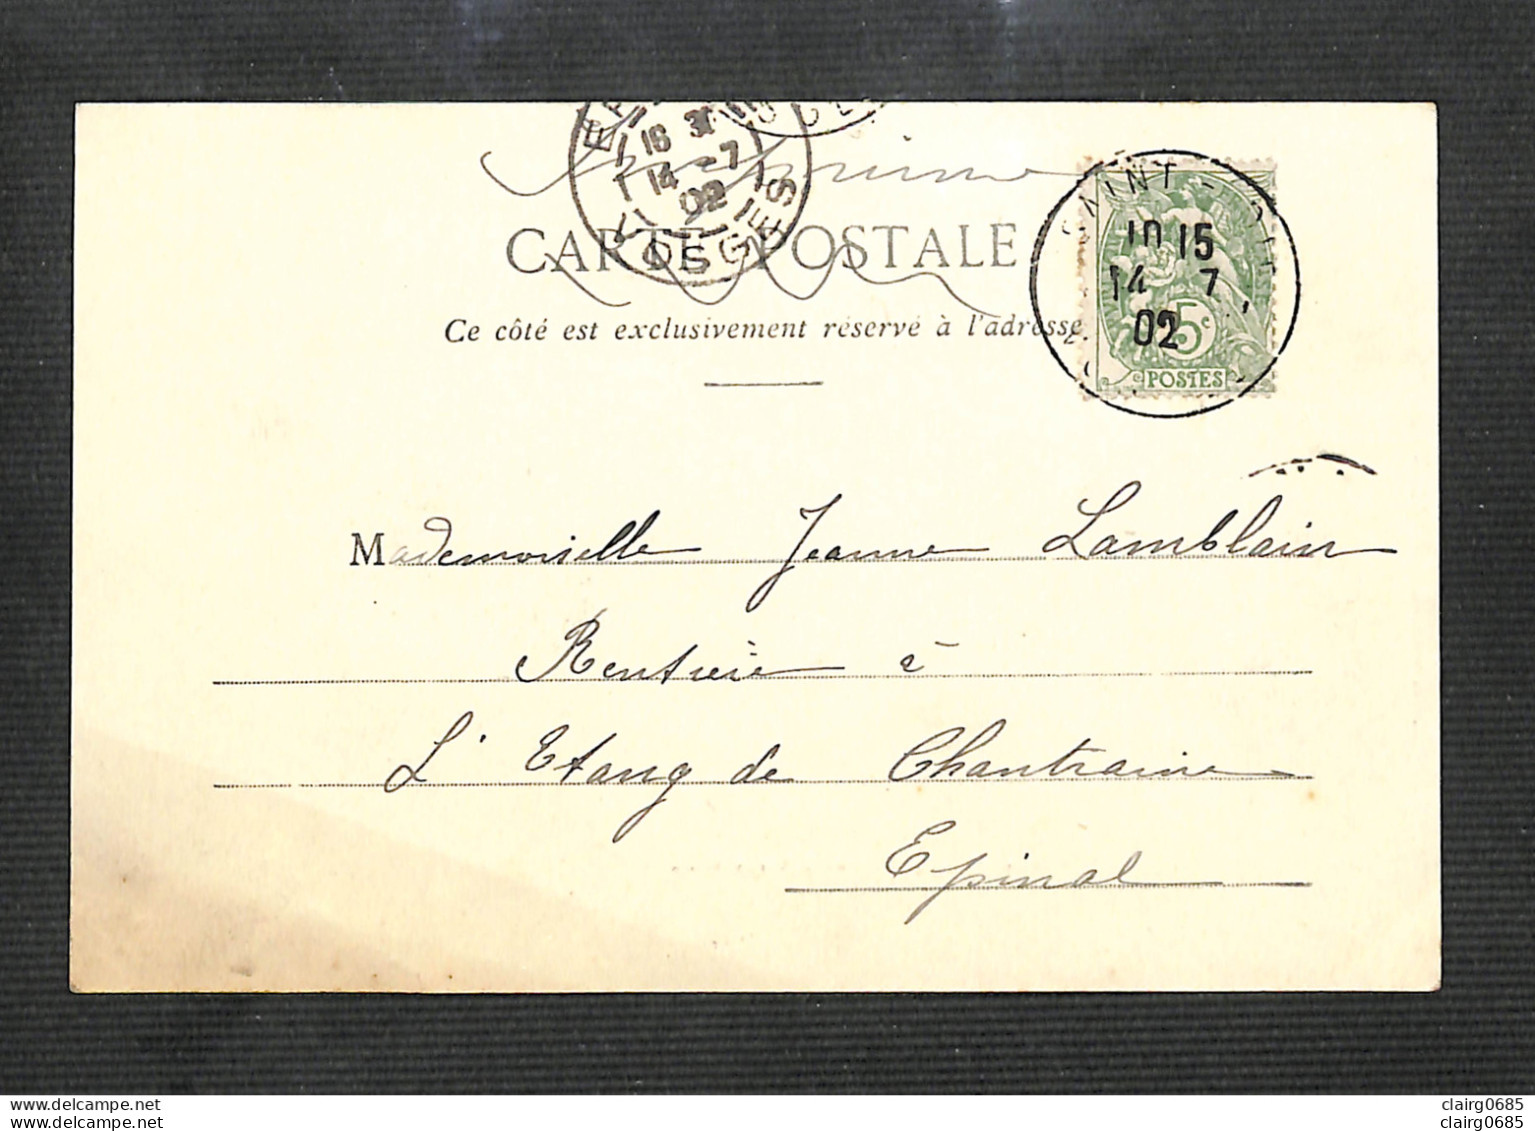 16 3
14 -7
02
OSGES
Imprimé
CARTE POSTALE
Ce côté est exclusivement réservé à l'adresse
SAINT-DIÉ
10 15
14 7
02
5c
POSTES
Mademoiselle Jeanne Lamblain
Rentière à
L'Etang de Chantraine
Epinal
www.delcampe.net
www.delcampe.net
clairg0685
clairg0685